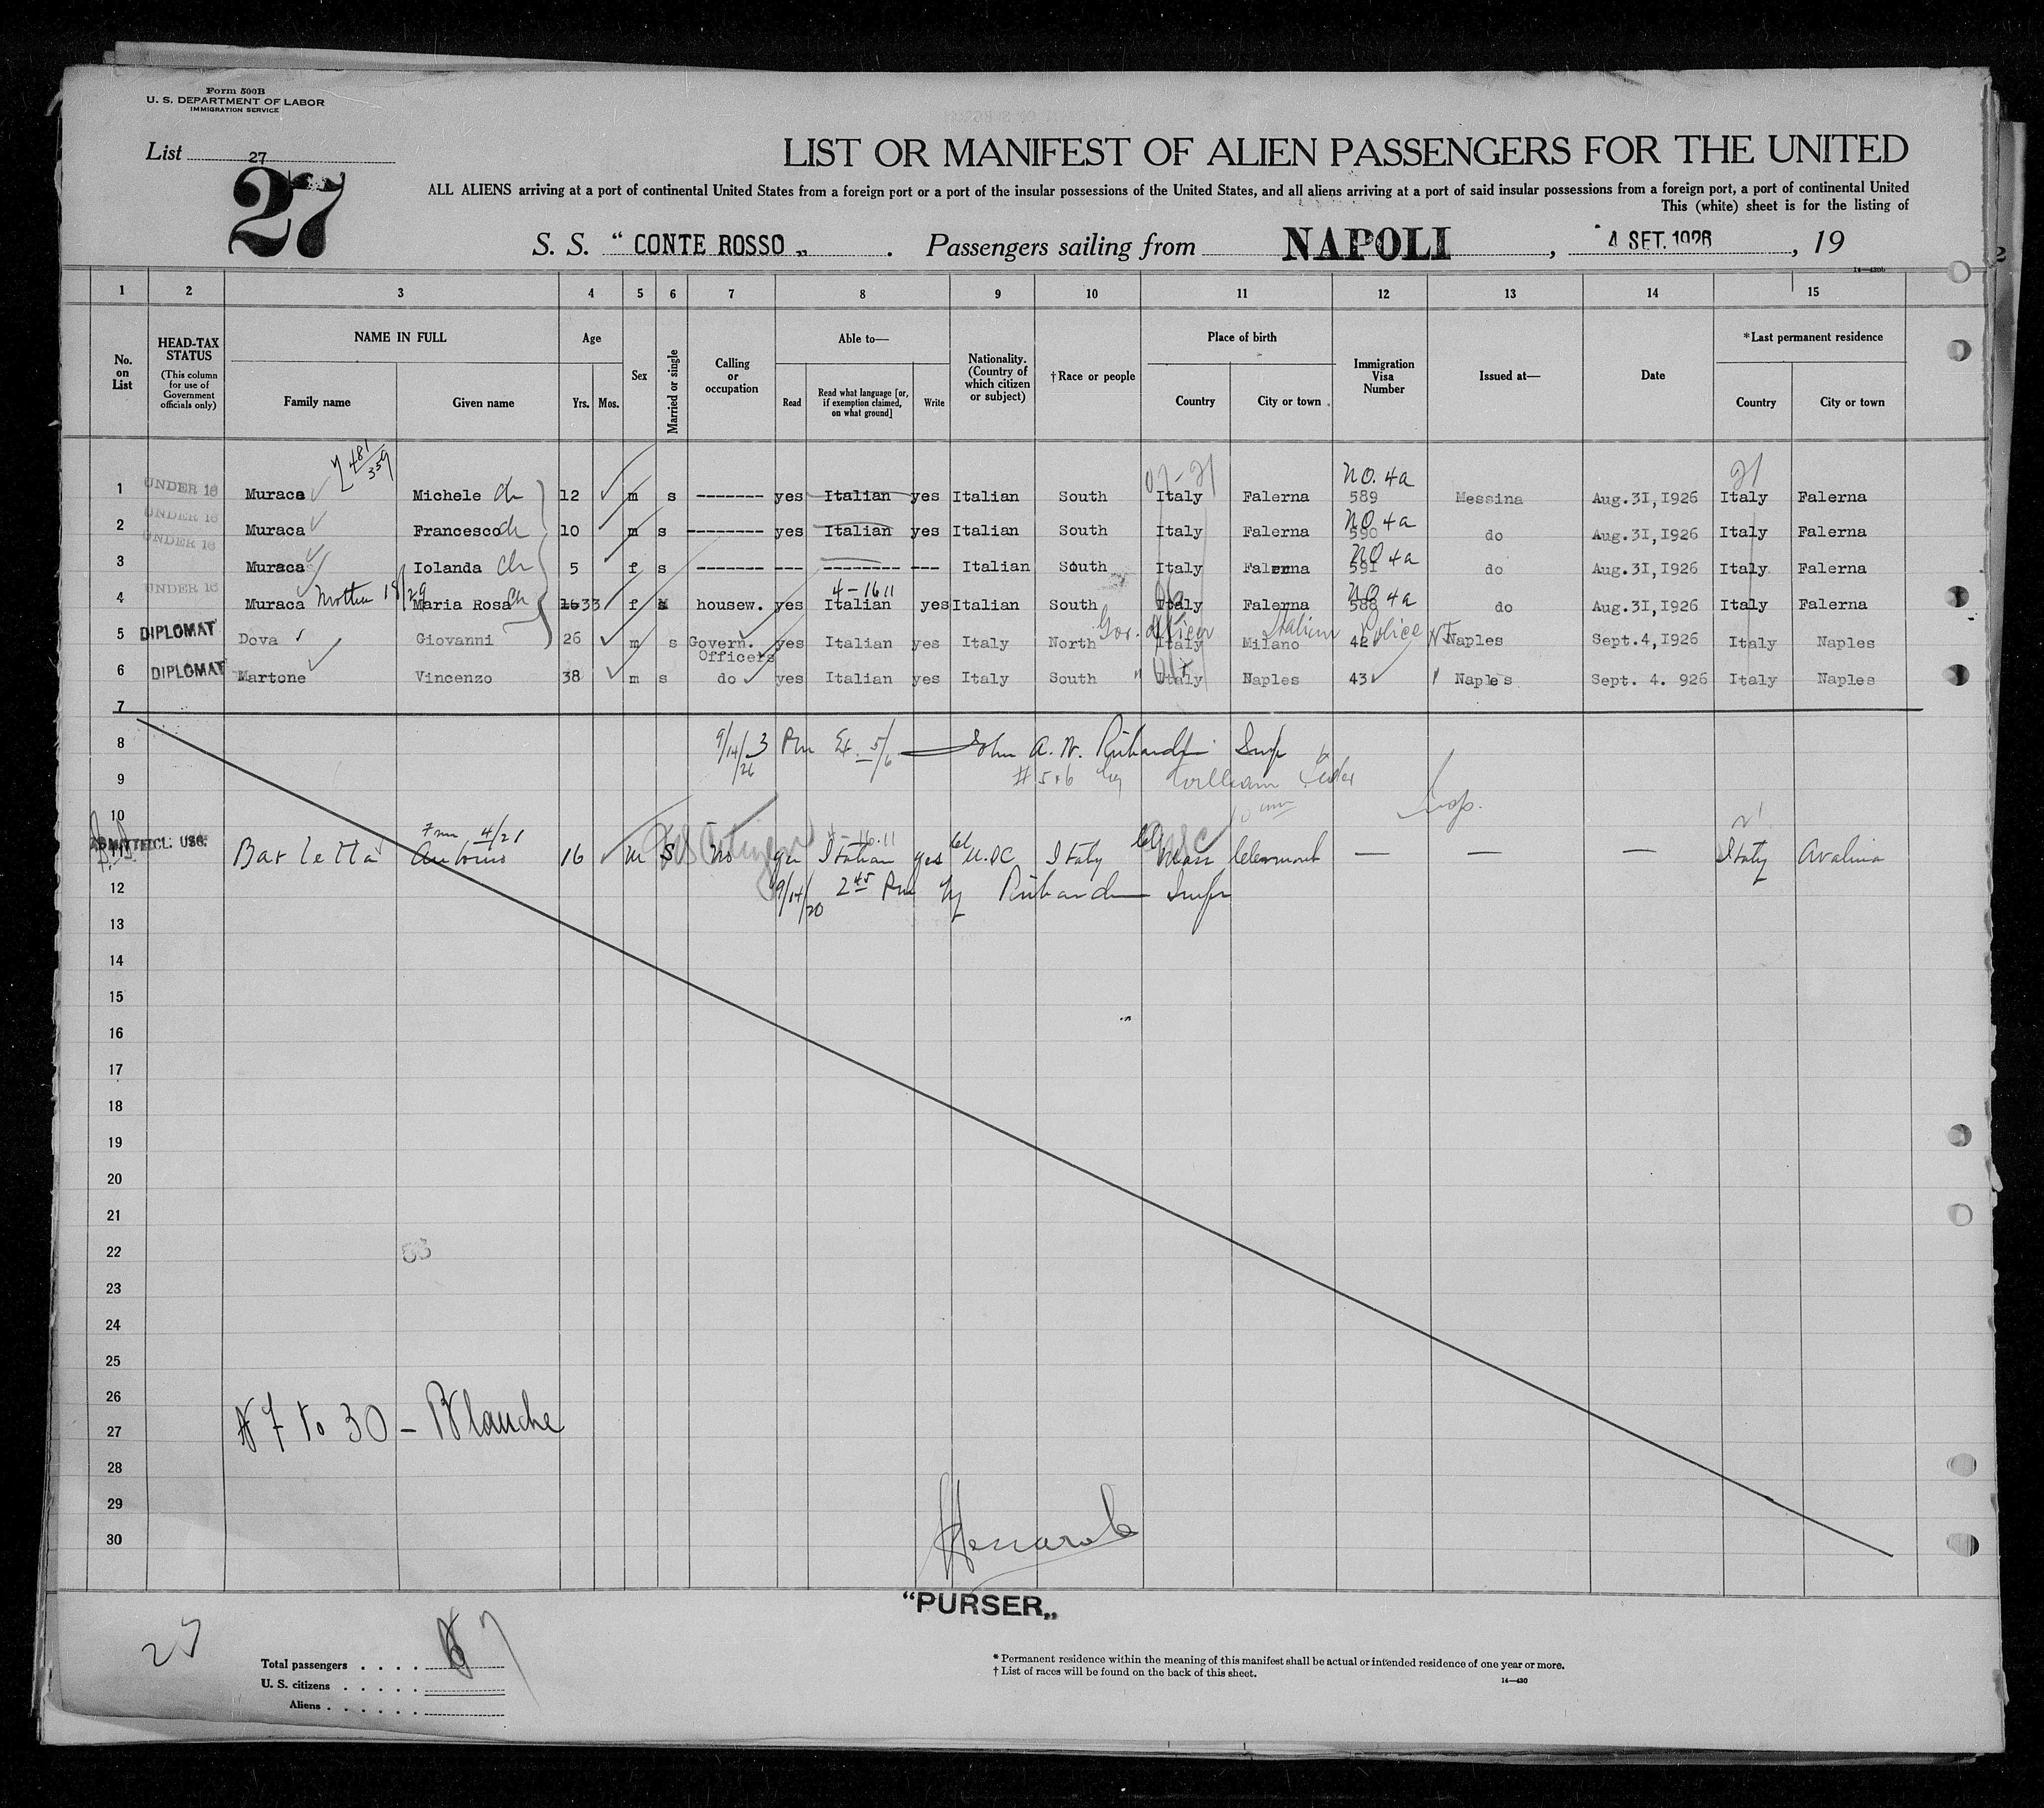 Form 500B
U. S. DEPARTMENT OF LABOR
IMMIGRATION SERVICE
List 27
27
LIST OR MANIFEST OF ALIEN PASSENGERS FOR THE UNITED
ALL ALIENS arriving at a port of continental United States from a foreign port or a port of the insular possessions of the United States, and all aliens arriving at a port of said insular possessions from a foreign port, a port of continental United
This (white) sheet is for the listing of
S. S. " CONTE ROSSO „ . Passengers sailing from NAPOLI , 4 SET. 1926 , 19
14—430b
1 2 3 4 5 6 7 8 9 10 11 12 13 14 15
No. on List
HEAD-TAX STATUS (This column for use of Government officials only)
NAME IN FULL
Family name Given name
Age
Yrs. Mos.
Sex
Married or single
Calling or occupation
Able to—
Read Read what language [or, if exemption claimed, on what ground] Write
Nationality. (Country of which citizen or subject)
†Race or people
Place of birth
Country City or town
Immigration Visa Number
Issued at—
Date
*Last permanent residence
Country City or town
481/359
1 UNDER 16 Muraca Michele ch 12 m s ------- yes Italian yes Italian South Italy Falerna NO. 4a 589 Messina Aug.31,1926 Italy Falerna
2 UNDER 16 Muraca Francesco ch 10 m s -------- yes Italian yes Italian South Italy Falerna NO 4a 590 do Aug.31,1926 Italy Falerna
3 UNDER 16 Muraca Iolanda ch 5 f s ------- --- --------- --- Italian South Italy Falerna NO 4a 591 do Aug.31,1926 Italy Falerna
4-1611
4 UNDER 16 Muraca Mother Maria Rosa ch 33 f housew. yes Italian yes Italian South Italy Falerna NO 4a 588 do Aug.31,1926 Italy Falerna
Gov. Officer Italian Police
5 DIPLOMAT Dova Giovanni 26 m s Govern. Officers yes Italian yes Italy North Italy Milano 42 Naples Sept.4,1926 Italy Naples
6 DIPLOMAT Martone Vincenzo 38 m s do yes Italian yes Italy South " Italy Naples 43 Naples Sept. 4. 926 Italy Naples
7
8 9/14/26 3 Pm Ex. 5/6 John A. W. Insp
9 #5+6 by William
Insp.
10
4/21 4-16.11
11 Barletta Antonio 16 m S No yes Italian yes U.S.C Italy Mass Claremont — — — Italy Avalina
12 9/14/20 2 45 Pm by Insp
13
14
15
16
17
18
19
20
21
22
23
24
25
26
27 N 7 to 30 - Blanche
28
29
30
"PURSER„
27
Total passengers . . . . 7
U. S. citizens . . . . .
Aliens . . . . . .
* Permanent residence within the meaning of this manifest shall be actual or intended residence of one year or more.
† List of races will be found on the back of this sheet.
14—430